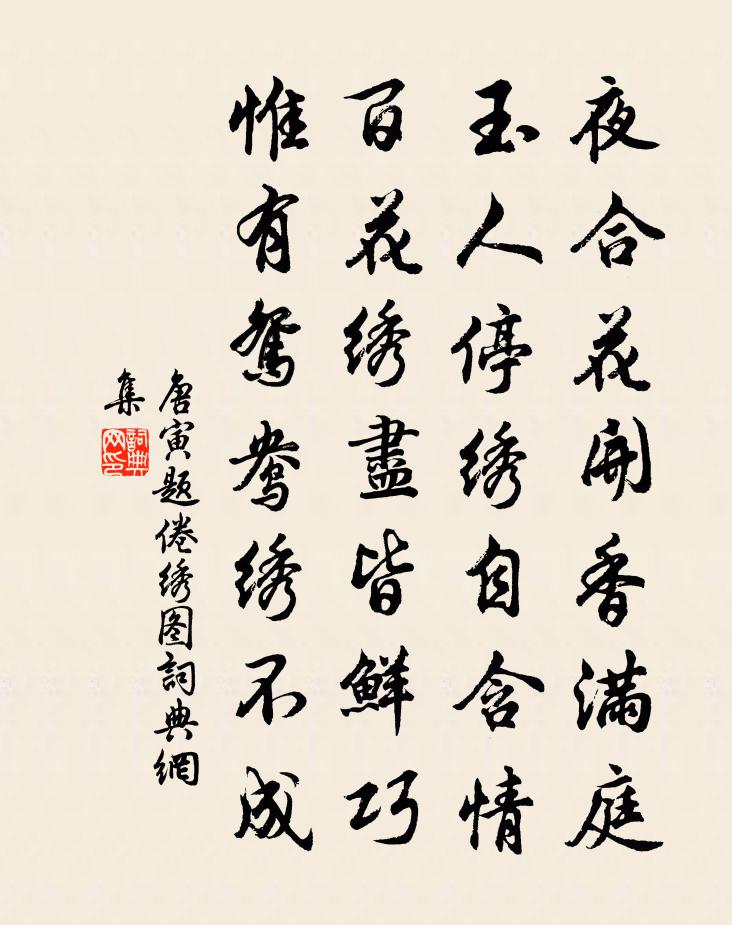 夜合花開香滿庭
玉人停綉自含情
百花綉盡皆鮮巧
惟有鴛鴦綉不成
唐寅題倦綉图詞典網
集
詞典
网印